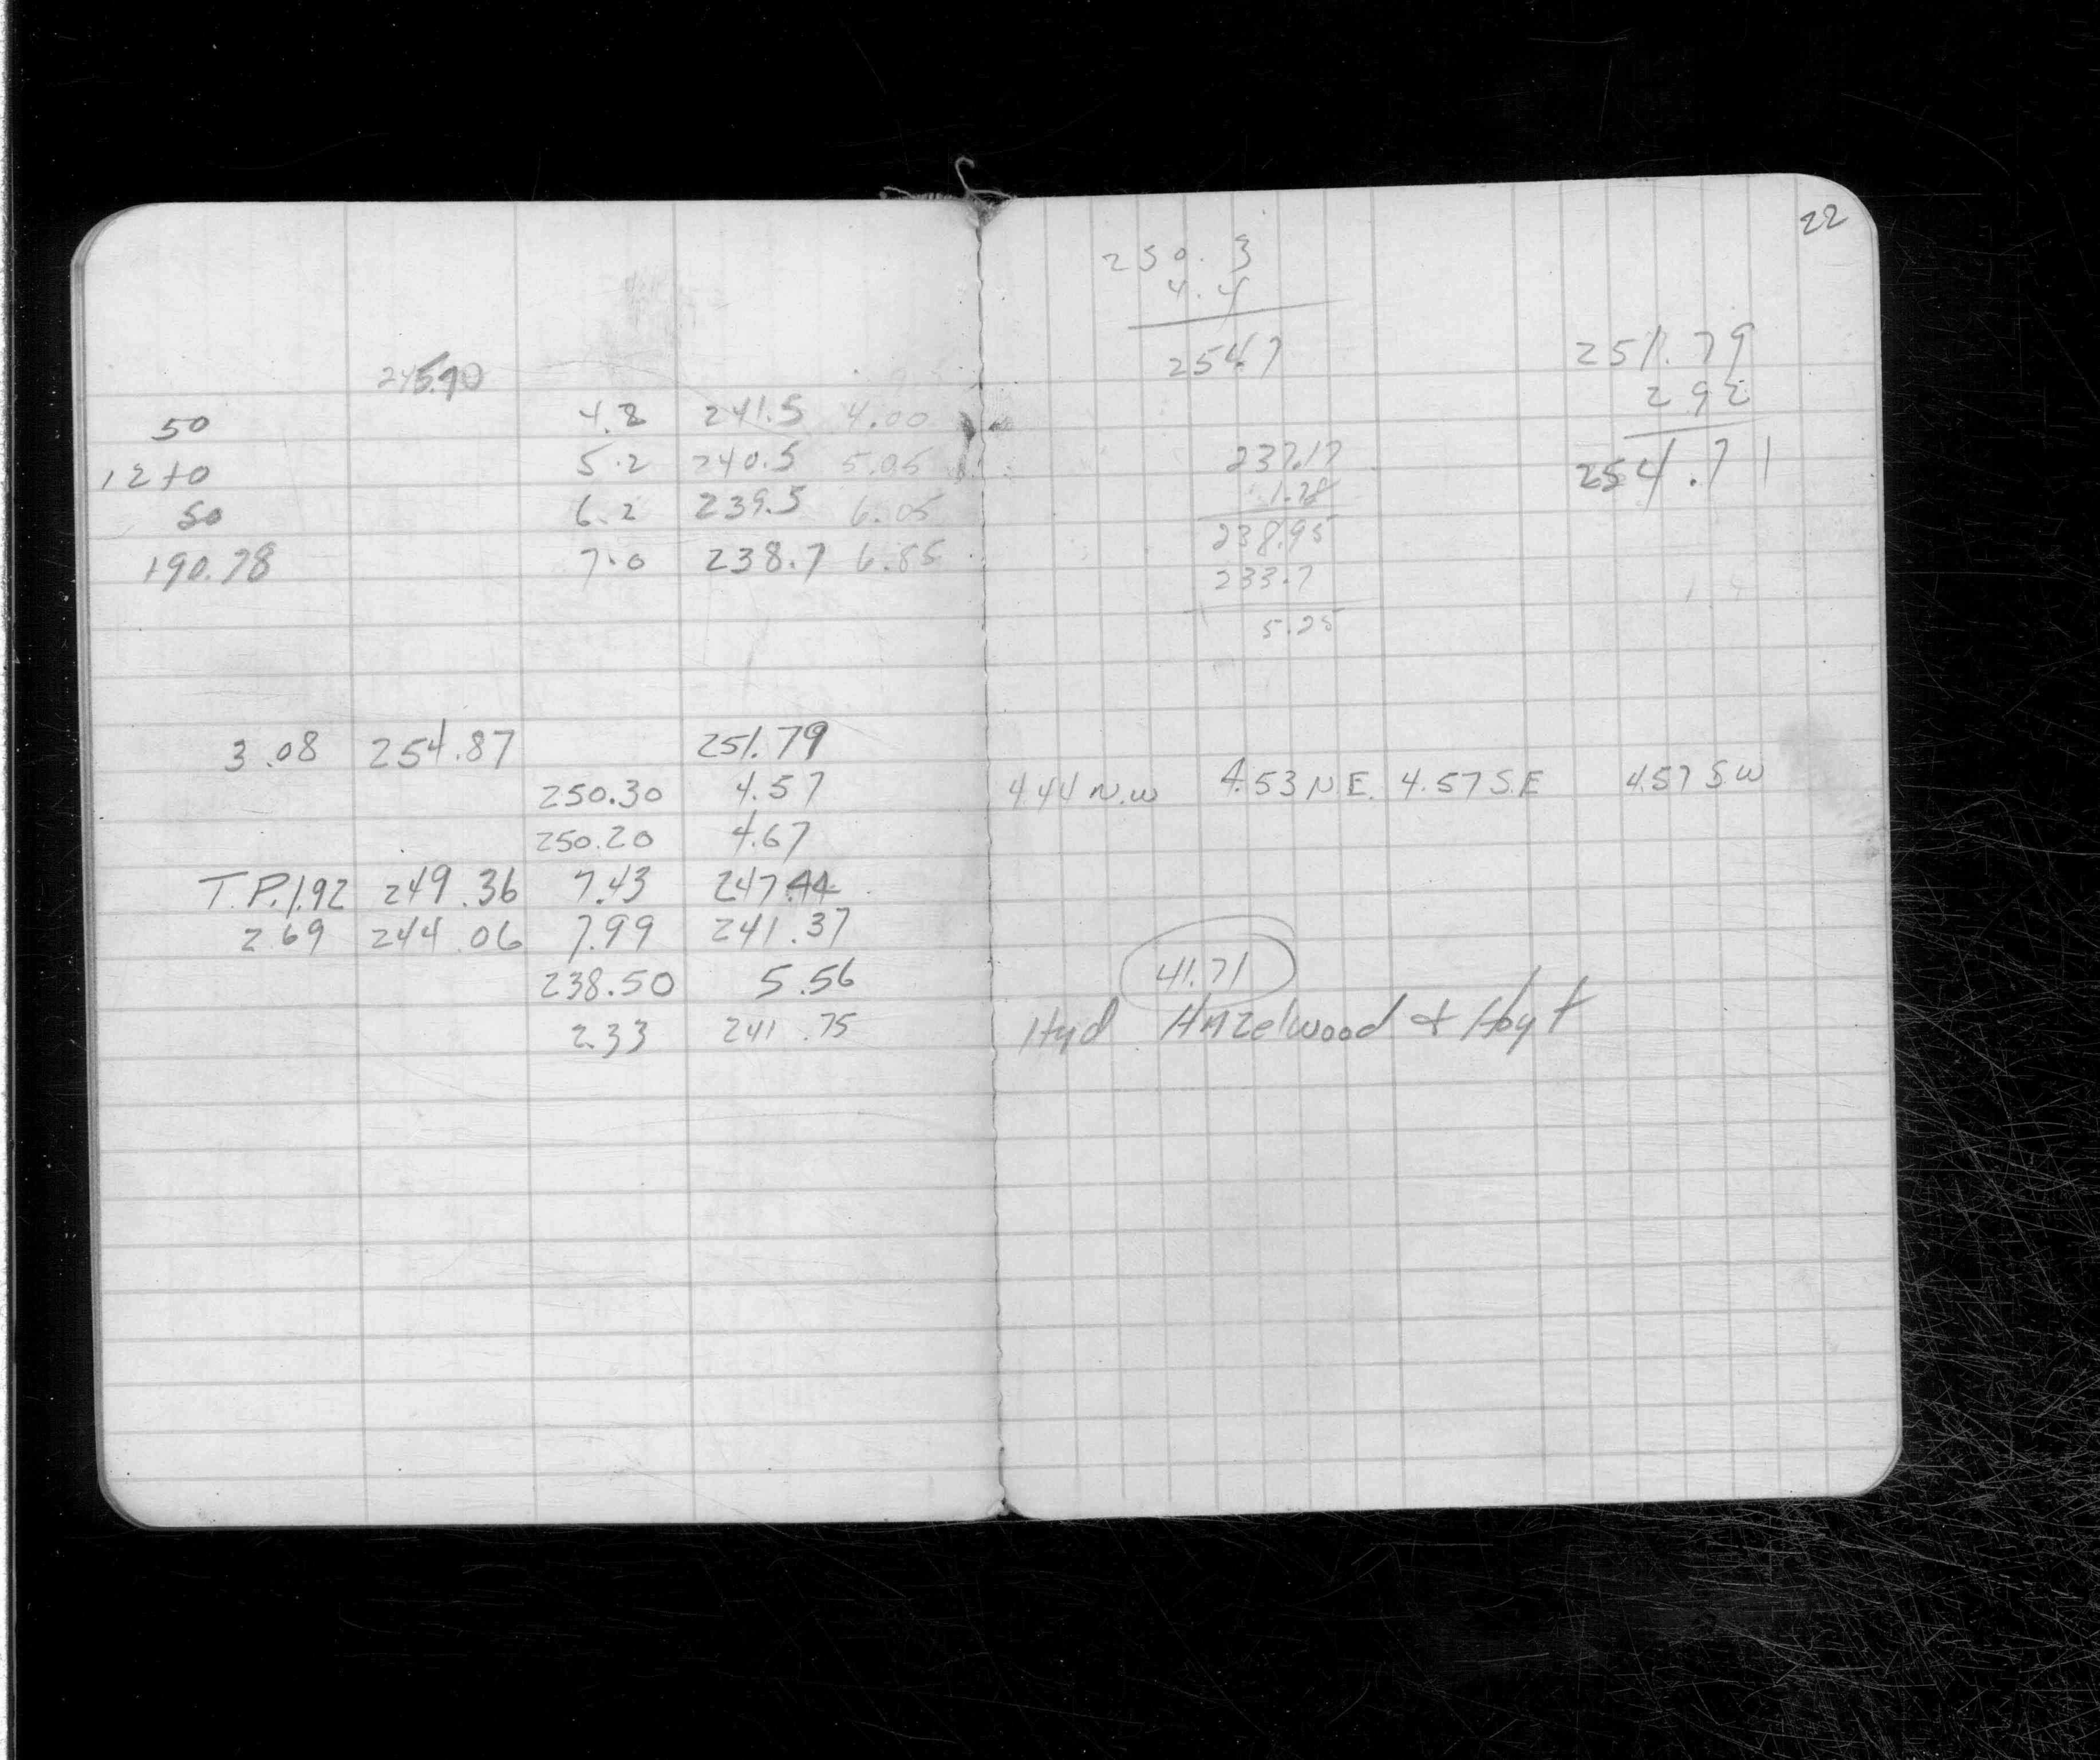 245.70
50 4.2 241.5 4.00
12+0 5.2 240.5 5.05
50 6.2 239.5 6.05
+90.78 7.0 238.7 6.85
3.08 254.87 251.79
250.30 4.57
250.20 4.67
T.P. 1.92 249.36 7.43 247.44
2 69 244.06 7.99 241.37
238.50 5.56
2.33 241.75
22
250.3
4.4
254.7
251.79
2 92
254.71
237.17
1.78
238.95
233.7
5.25
4 44 N.W 4.53 N.E. 4.57 S.E 4.57 S.W
41.71
Hyd Hazelwood & Hoyt